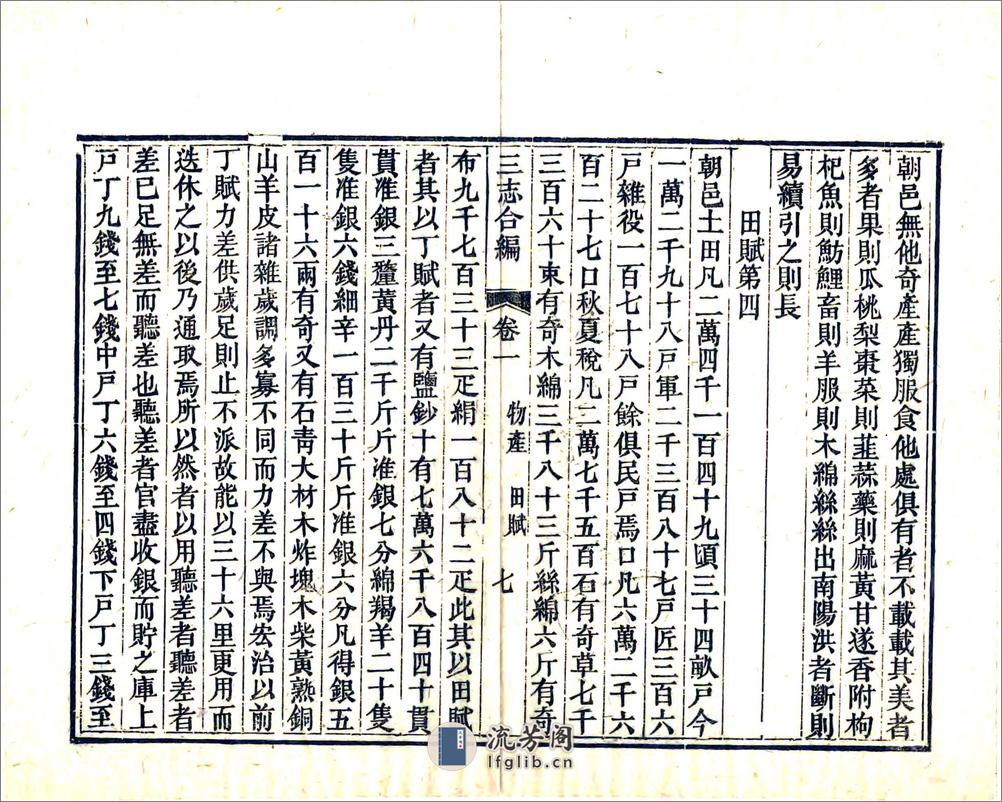 朝邑無他奇產產獨服食他處俱有者不載載其美者
多者果則瓜桃梨棗菜則韮蒜藥則麻黃甘遂香附枸
杞魚則魴鯉畜則羊服則木綿絲絲出南陽洪者斷則
易續引之則長
田賦第四
朝邑土田凡二萬四千一百四十九頃三十四畝戸今
一萬二千九十八戸軍二千三百八十七戸匠三百六
戸雜役一百七十八戸餘俱民戸焉口凡六萬二千六
百二十七口秋夏稅凡二萬七千五百石有奇草七千
三百六十束有奇木綿三千八十三斤絲綿六斤有奇
三志合編 卷一 物產 田賦 七
布九千七百三十三疋絹一百八十二疋此其以田賦
者其以丁賦者又有鹽鈔十有七萬六千八百四十貫
貫准銀三釐黃丹二千斤斤准銀七分綿羯羊二十隻
隻准銀六錢細辛一百三十斤斤准銀六分凡得銀五
百一十六兩有奇又有石靑大材木炸塊木柴黃熟銅
山羊皮諸雜歲調多寡不同而力差不與焉宏治以前
丁賦力差供歲足則止不派故能以三十六里更用而
迭休之以後乃通取焉所以然者以用聽差者聽差者
差已足無差而聽差也聽差者官盡收銀而貯之庫上
戸丁九錢至七錢中戸丁六錢至四錢下戸丁三錢至
流芳阁
lfglib.cn